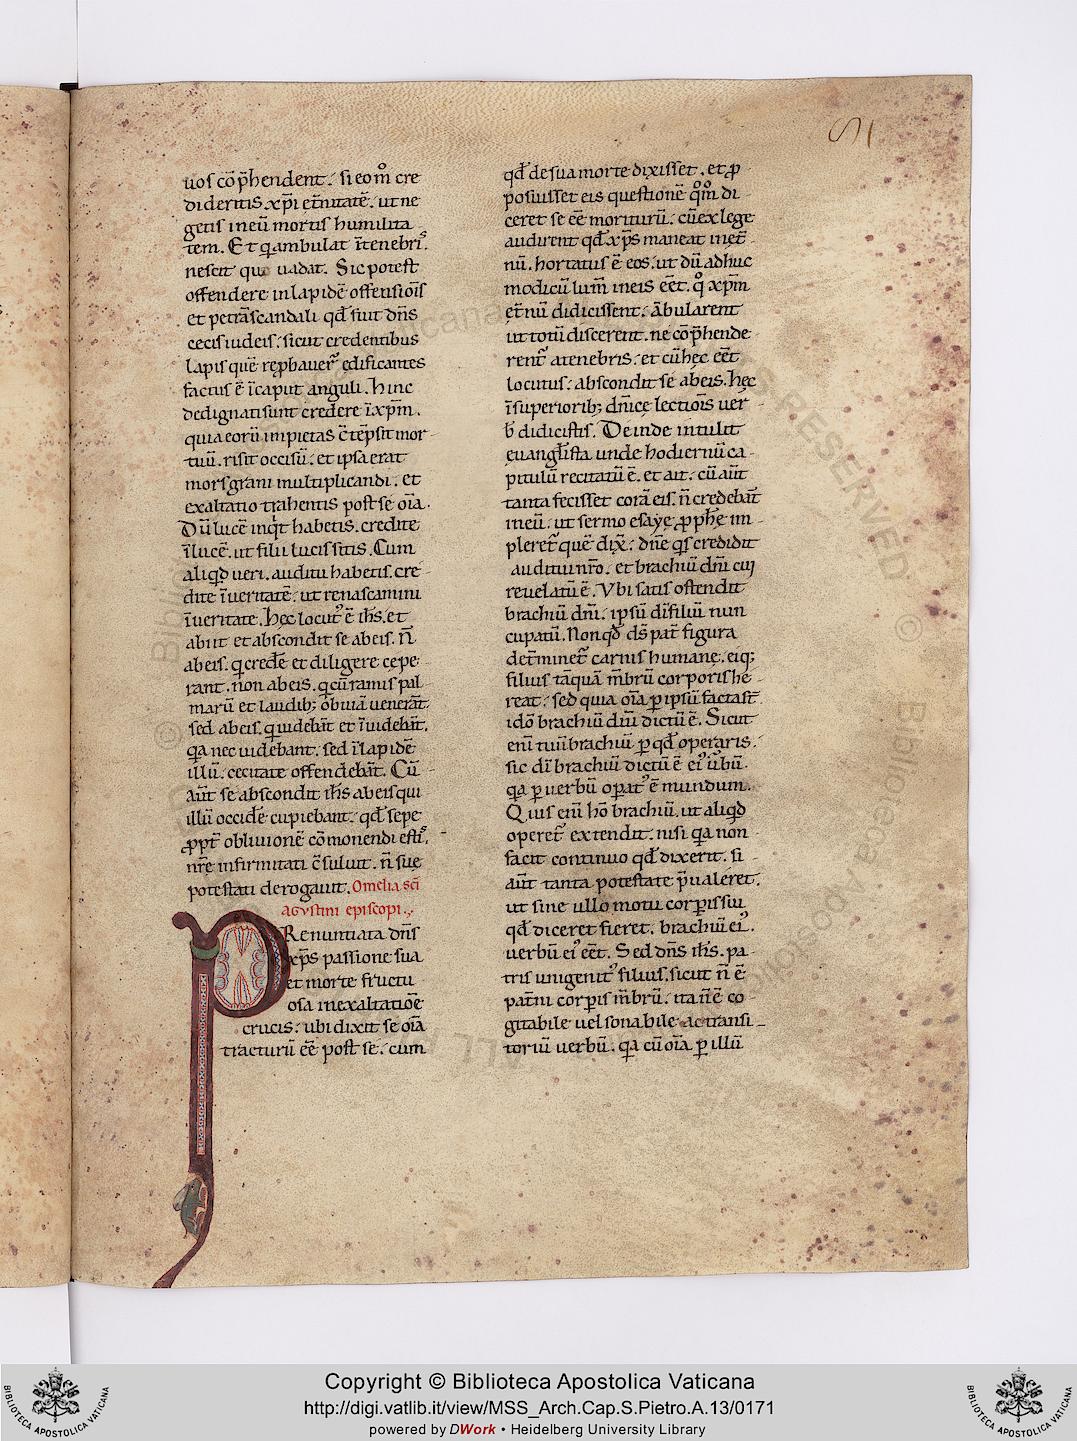 51
uos cōp̄hendent. si eo mͦ cre
dideritis xp̄i et̄nitatē. ut ne
getis in eū mortis humilita
tem. Et q̄ ambulat ī tenebris.
nescit quo uadat. Sic potest
offendere in lapidē offensiōis
et petrā scandali qd̄ fuit dn̄s
cecis iudeis. sicut credentibus
lapis quē rep̱bauer̄ edificantes
factus ē ī caput anguli. Hinc
dedignati sunt credere ī xp̄m.
quia eorū impietas c̄tēpsit mor
tuū. risit occisū. et ipsa erat
mors grani multiplicandi. et
exaltatio trahentis post se oīa.
Dū lucē inqͥt habetis. credite
ī lucē. ut filii lucis sitis. Cum
aliqͥd ueri. auditū habetis. cre
dite ī ueritatē. ut renascamini
ī ueritate. Hęc locutꝰ ē ih̄s. et
abiit et abscondit se ab eis. n̄
ab eis. qͥ credē et diligere cepe
rant. non ab eis. qͥ cū ramis pal
marū et laudib; obuiā uenerāt.
sed ab eis. qͥ uidebāt et īuidebāt.
qͣ nec uidebant. sed ī lapidē
illū. cecitate offendebāt. Cū
aūt se abscondit ih̄s ab eis qui
illū occidē cupiebant. qd̄ sepe
ꝓpt̄ obliuionē cōmonendi estis.
nr̄e infirmitati c̄suluit. n̄ suę
potestati derogauit. Omelia sc̄i
agustini episcopi.
PRenuntiata dn̄s
xp̄s passione sua
et morte fructu
osa in exaltatiōe
crucis. ubi dixit se oīa
tracturū eē post se. cum
qd̄ de sua morte dixisset. et ꝓ
posuisset eis questionē qͦmͦ di
ceret se eē moriturū. cū ex lege
audirent qd̄ xp̄s maneat in et̄
nū. hortatus ē eos. ut dū adhuc
modicū lum̄ in eis eēt. qͦ xp̄m
et̄nū didicissent. ābularent
ut totū discerent. ne cōp̄hende
rent̄ a tenebris. et cū hęc eēt
locutus. abscondit se ab eis. hęc
ī superiorib; dn̄ice lectiōis uer
b̄ didicistis. Deinde intulit
euangl̄ista unde hodiernū ca
pitulū recitatū ē. et ait. cū aūt
tanta fecisset corā eis. n̄ credebāt
in eū. ut sermo esayę ꝓphę im
pleret̄ quē dix̄. dn̄e qͥs credidit
auditui nr̄o. et brachiū dn̄i cui
reuelatū ē. Vbi satis ostendit
brachiū dn̄i. ipsū dī filiū nun
cupatū. Non qd̄ ds̄ pat̄ figura
det̄minet̄ carnis humanę. eiq;
filius tāquā mēbrū corporis hę
reat. sed quia oīa ꝑ ipsū facta st̄
ideo brachiū dn̄i dictū ē. Sicut
enī tuū brachiū ꝑ qd̄ operaris.
sic dī brachiū dictū ē eiꝰ uerbū.
qͣ ꝑ uerbū opat̄ꝰ ē mundum.
Quis enī hō brachiū. ut aliqͥd
operet̄ extendit. nisi qͣ non
facit continuo qd̄ dixerit. si
aūt tanta potestate p̄ualeret.
ut sine ullo motu corꝑis sui
qd̄ diceret fieret. brachiū eiꝰ.
uerbū eiꝰ eēt. Sed dn̄s ih̄s. pa
tris unigenitꝰ filius. sicut n̄ ē
pat̄ni corꝑis mēbrū. ita n̄ ē co
gitabile uel sonabile ac transi
toriū uerbū. qͣ cū oīa ꝑ illū
Copyright © Biblioteca Apostolica Vaticana
http://digi.vatlib.it/view/MSS_Arch.Cap.S.Pietro.A.13/0171
powered by DWork • Heidelberg University Library
BIBLIOTECA APOSTOLICA VATICANA
BIBLIOTECA APOSTOLICA VATICANA